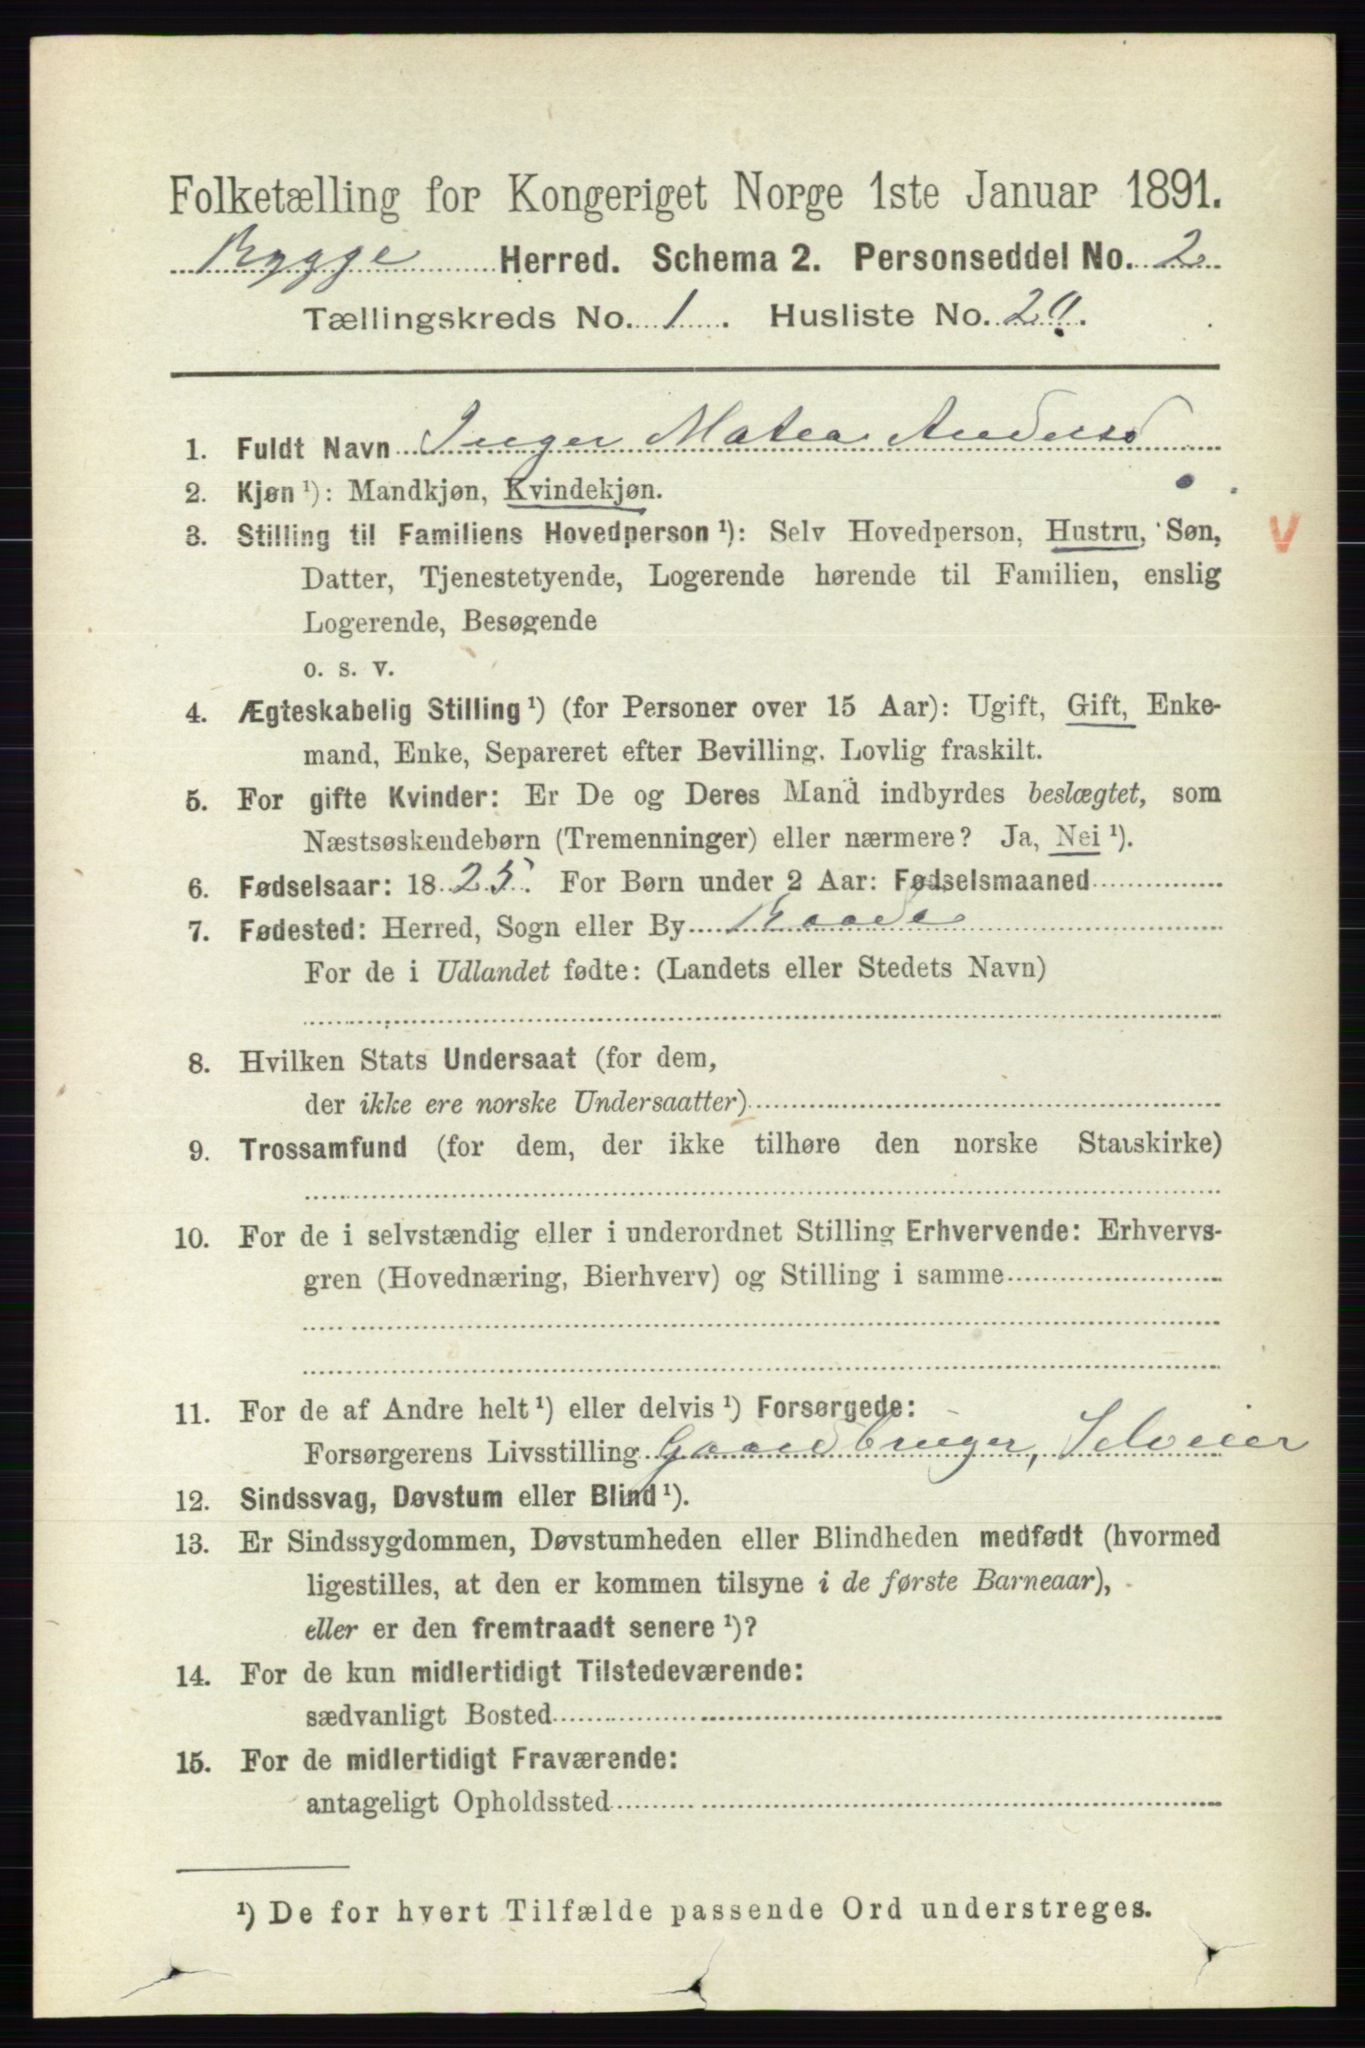 Folketælling for Kongeriget Norge 1ste Januar 1891.
Rygge Herred. Schema 2. Personseddel No. 2
Tællingskreds No. 1. Husliste No. 20.
1. Fuldt Navn Inger Matea Andersd
2. Kjøn ¹): Mandkjøn, Kvindekjøn.
3. Stilling til Familiens Hovedperson ¹): Selv Hovedperson, Hustru, Søn,
Datter, Tjenestetyende, Logerende hørende til Familien, enslig
Logerende, Besøgende
o. s. v.
4. Ægteskabelig Stilling ¹) (for Personer over 15 Aar): Ugift, Gift, Enke-
mand, Enke, Separeret efter Bevilling. Lovlig fraskilt.
5. For gifte Kvinder: Er De og Deres Mand indbyrdes beslægtet, som
Næstsøskendebørn (Tremenninger) eller nærmere? Ja, Nei ¹).
6. Fødselsaar: 1825. For Børn under 2 Aar: Fødselsmaaned
7. Fødested: Herred, Sogn eller By Raade
For de i Udlandet fødte: (Landets eller Stedets Navn)
8. Hvilken Stats Undersaat (for dem,
der ikke ere norske Undersaatter)
9. Trossamfund (for dem, der ikke tilhøre den norske Statskirke)
10. For de i selvstændig eller i underordnet Stilling Erhvervende: Erhvervs-
gren (Hovednæring, Bierhverv) og Stilling i samme
11. For de af Andre helt ¹) eller delvis ¹) Forsørgede:
Forsørgerens Livsstilling Gaardbruger, Selveier
12. Sindssvag, Døvstum eller Blind ¹).
13. Er Sindssygdommen, Døvstumheden eller Blindheden medfødt (hvormed
ligestilles, at den er kommen tilsyne i de første Barneaar),
eller er den fremtraadt senere ¹)?
14. For de kun midlertidigt Tilstedeværende:
sædvanligt Bosted
15. For de midlertidigt Fraværende:
antageligt Opholdssted
¹) De for hvert Tilfælde passende Ord understreges.